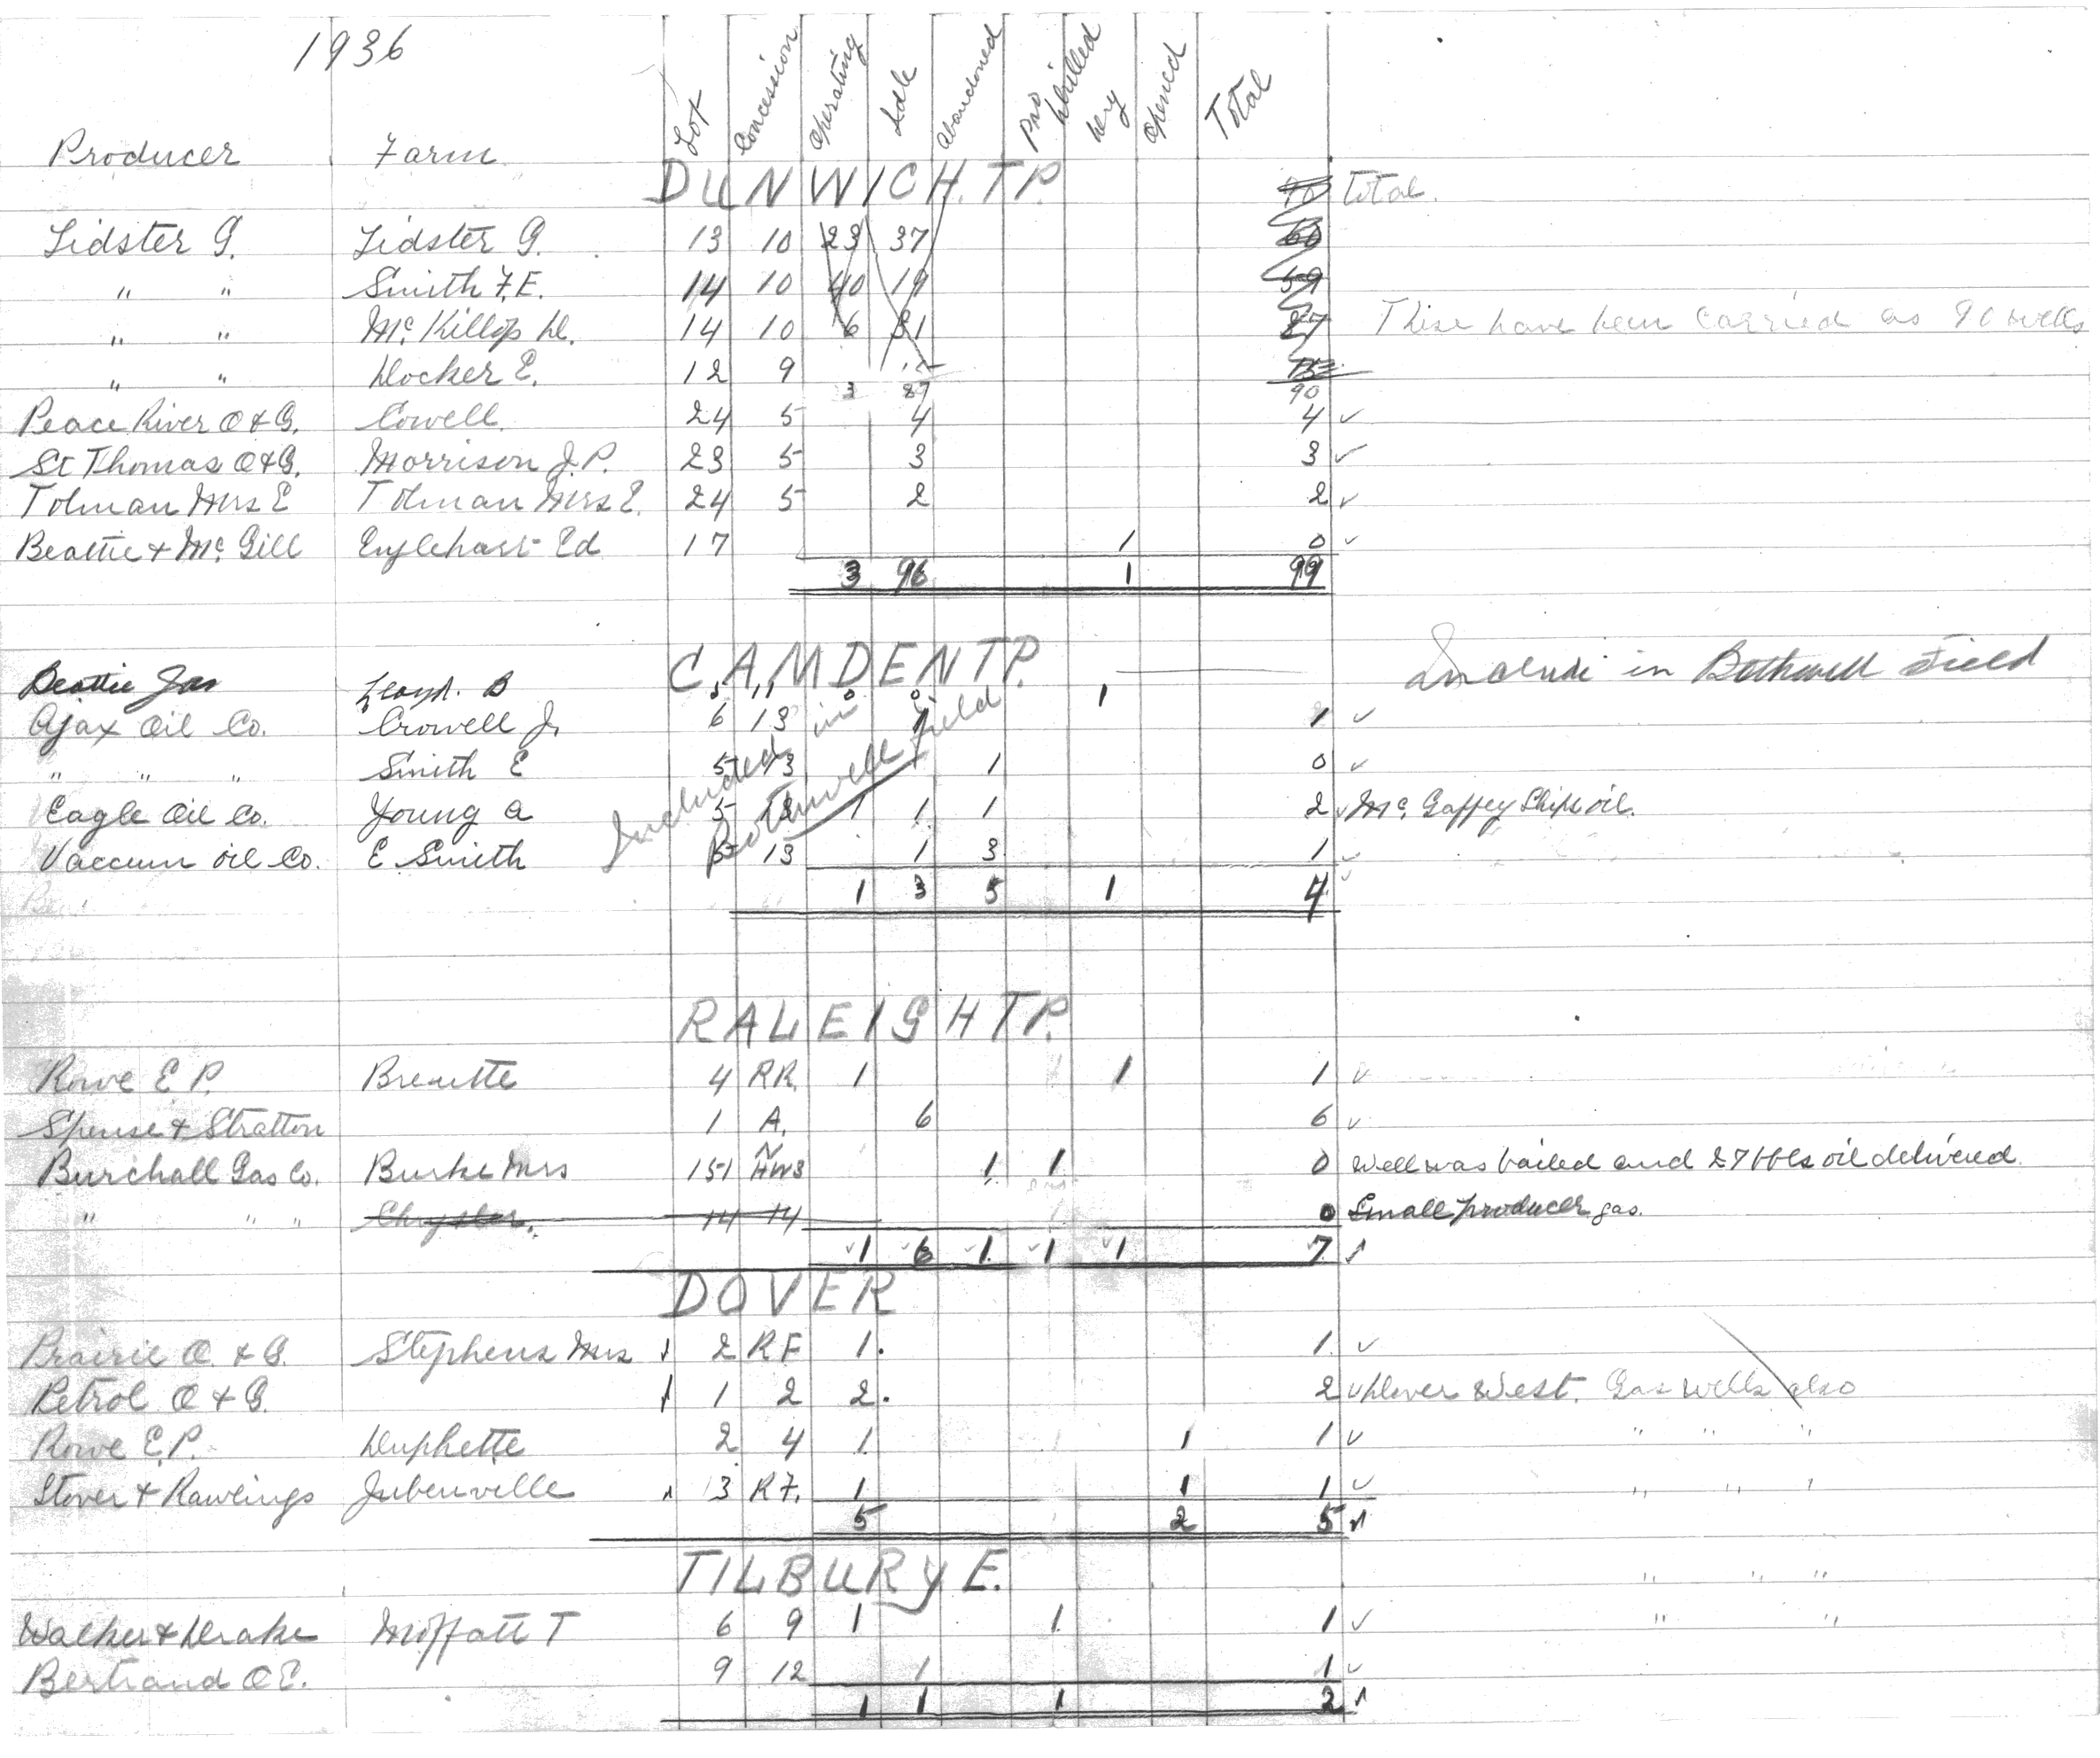 1936
Producer Farm Lot Concession Operating Idle Abandoned Pro Drilled Dry Opened Total
DUNWICH. TP. 70 total.
Lidster G. Lidster G. 13 10 23 37 60
" " Smith F.E. 14 10 40 19 59
" " Mc Killop D. 14 10 6 81 87 These have been carried as 90 wells
" " Docker E. 12 9 15
3 87 90
Peace River O & G. Cowell. 24 5 4 4 ✓
St Thomas O & G. Morrison J.P. 23 5 3 3 ✓
Tolman Mrs E Tolman Mrs E. 24 5 2 2 ✓
Beattie & Mc Gill Englehart Ed 17 1 0 ✓
3 96 1 99
CAMDEN TP. Include in Bothwell Field
Beattie Jas Lloyd. B 5 11 0 0 1
Ajax Oil Co. Crowell J. 6 13 1 1 ✓
" " " Smith E 5 13 1 1 0 ✓
Included in Bothwell Field
Eagle Oil Co. Young A 5 13 1 1 1 2 ✓ Mc Gaffey Ships oil.
Vaccum oil Co. E. Smith 5 13 1 3 1 ✓
1 3 5 1 4 ✓
RALEIGH TP.
Rowe E.P. Brenette 4 RR. 1 1 1 ✓
Spense & Stratton 1 A. 6 6 ✓
Burchall Gas Co. Burke Mrs 151 N HWS 1 1 0 Well was bailed and 27 bbls oil delivered.
" " " Chrysler. 14 14 0 Small producer gas.
✓1 ✓6 ✓1 ✓1 ✓1 7
DOVER
Prairie O. & G. Stephens Mrs 2 RF 1. 1. ✓
Petrol O & G. 1 2 2. 2 ✓ Dover West. Gas wells also
Rowe E.P. Duphette 2 4 1. 1 1 ✓ " " "
Stover & Rawlings Jubenville 13 R7. 1 1 1 ✓ " " "
5 2 5
TILBURY E. " " "
Walker & Drake Moffatt T 6 9 1 1. 1 ✓ " "
Bertrand O E. 9 12 1 1 ✓
1 1 1 2